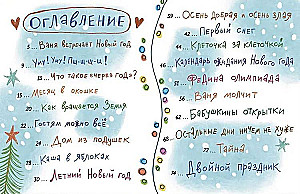 Оглавление
5... Ваня встречает Новый год
9... Уму! Уму! Пи-и-и-и!
13... Что такое через год?
15... Месяц в окошке
20... Как вращается Земля
22... Гостям можно всё
24... Дом из подушек
28... Каша в яблоках
30... Летний Новый год
39... Осень добрая и осень злая
42... Первый снег
44... Клеточка за клеточкой
46... Календарь ожидания Нового года
52... Федина олимпиада
56... Ваня молчит
62... Бабушкины открытки
68... Остальные дни ничем не хуже
72... Тайна
Двойной праздник